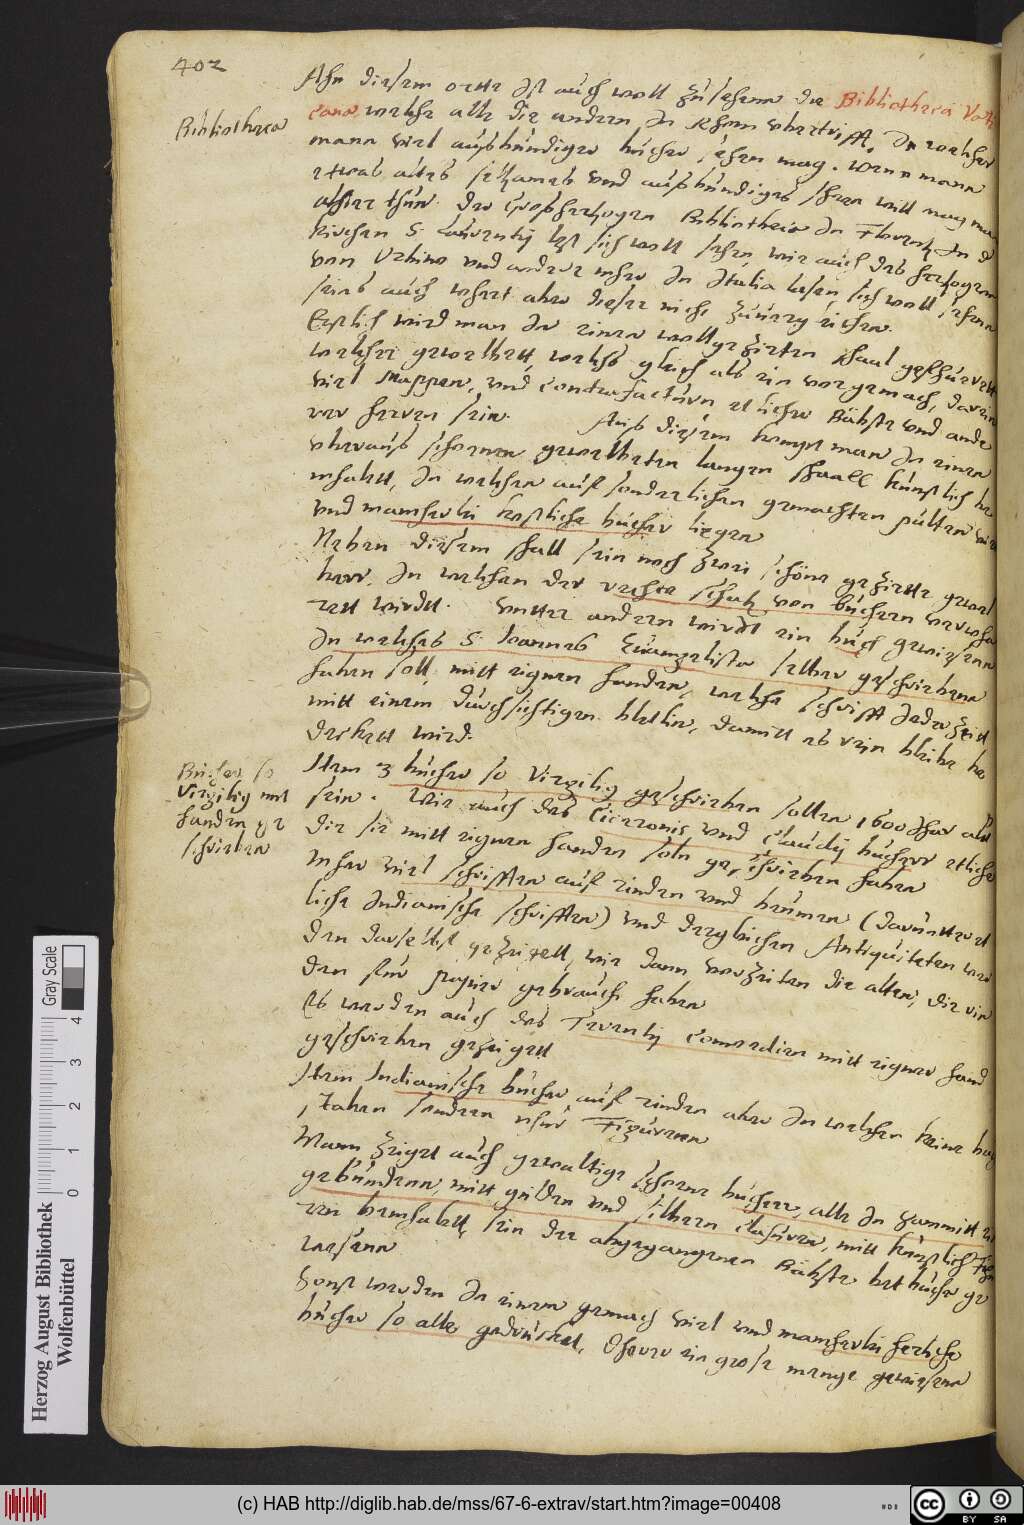 402
Bibliotheca
Ahn diesem orthe ist auch woll zusehenn die Bibliotheca Vati
cana welche alle die andern in Rhom vbertrifft. In welcher
mann viel aussbündiger bücher sehen mag. wenn mann
etwas altes seltzames vnd aussbündiges sehen will mag man
alhier thun. der Grossherzogen Bibliothecia in Florentz in d
Kirchen S. Laurentij lest sich woll sehen, wie auch des herzogen
von Vrbino vnd andere mher in Italia lasen sich woll sehenn
seins auch whert aber dieser nicht zuuergleichen.
Erstlich wird man in einen wollgezierten Saal gefhüerett
welcher gewelbett, welchs gleich als ein vorgemach, darin
viel Wappen, vnd contrafacturn etlicher Bäbste vnd ande
rer herren sein. Aus diesem kompt man in einen
vberauss schoenen gewelbeten langen Saall künstlich be
mahlet, in welchen auff sonderlichen gemachten pulten vie
vnd mancherlei köstliche bücher liegen
Neben diesem Sall sein noch zwei schöne gezierte gewel
ber, in welchen der rechte schatz von büchern verwha
rett wirdt. Vntter andern wirdt ein buch gewiesenn
In welches S. Ioannes Euangelista selber geschriebenn
haben soll, mitt eignen handen, welche schrifft iederzeitt
mitt einem durchsichtigen bletlin, damitt es rein bleibe be
deckett wird.
Bücher so
Virgilij mit
handen ge
schrieben
Item 3 bücher so Virgilij geschrieben sollen 1600 Jhar alt
sein. Wie auch des Ciceronis vnd Claudij büchere etliche
die sie mitt eignen handen soln geschrieben haben
Mher viel schrifften auff rinden vnd beumen (daruntter et
liche Indianische schrifften) vnd dergleichen Antiquiteten wer
den daselbst gezeigett, wie dann vorzeiten die alten, die rin
den fur papier gebrauch haben
Es werden auch des Terentij comoedien mitt eigner hand
geschrieben gezeigett
Item Indianische bücher auff rinden aber in welchen keine buch
staben sondern nhur Figuren
Mann zeiget auch gewaltige schoene bücher, alle in Sammitt ein
gebundenn, mitt gulden vnd silbern clasuren, mitt künstlich Figu
ren bemhalett, sein der abgegangenen Bäbste betbücher ge
wesenn
Sonst werden in einem gemach viel vnd mancherlei herliche
bücher so alles gedrücket, Ohnne ein grose menge gewiesenn
Herzog August Bibliothek
Wolfenbüttel
Gray Scale
0 1 2 3 4
(c) HAB http://diglib.hab.de/mss/67-6-extrav/start.htm?image=00408
HAB
cc BY SA